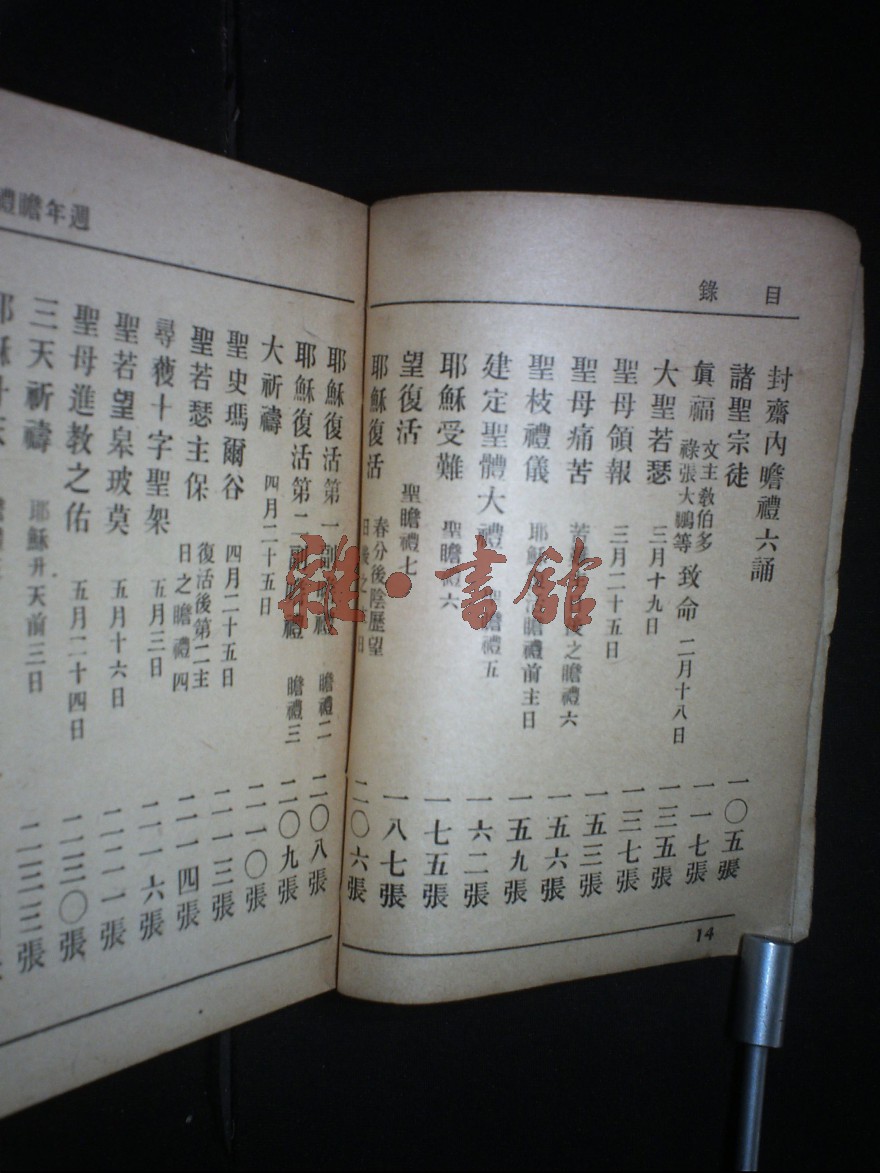 目錄
封齋內瞻禮六誦 一〇五張
諸聖宗徒 一一七張
眞福 文主教伯多祿張大鵬等 致命 二月十八日 一三五張
大聖若瑟 三月十九日 一三七張
聖母領報 三月二十五日 一五三張
聖母痛苦 苦 後之瞻禮六 一五六張
聖枝禮儀 耶穌 瞻禮前主日 一五九張
建定聖體大禮 聖瞻禮五 一六二張
耶穌受難 聖瞻禮六 一七五張
望復活 聖瞻禮七 一八七張
耶穌復活 春分後陰歷望日後之 日 二〇六張
14
週年瞻禮
耶穌復活第一副瞻禮 瞻禮二 二〇八張
耶穌復活第二副瞻禮 瞻禮三 二〇九張
大祈禱 四月二十五日 二一〇張
聖史瑪爾谷 四月二十五日 二一三張
聖若瑟主保 復活後第二主日之瞻禮四 二一四張
尋獲十字聖架 五月三日 二一六張
聖若望臬玻莫 五月十六日 二二一張
聖母進教之佑 五月二十四日 二三〇張
三天祈禱 耶穌升天前三日 二三三張
耶穌升天
雜·書館